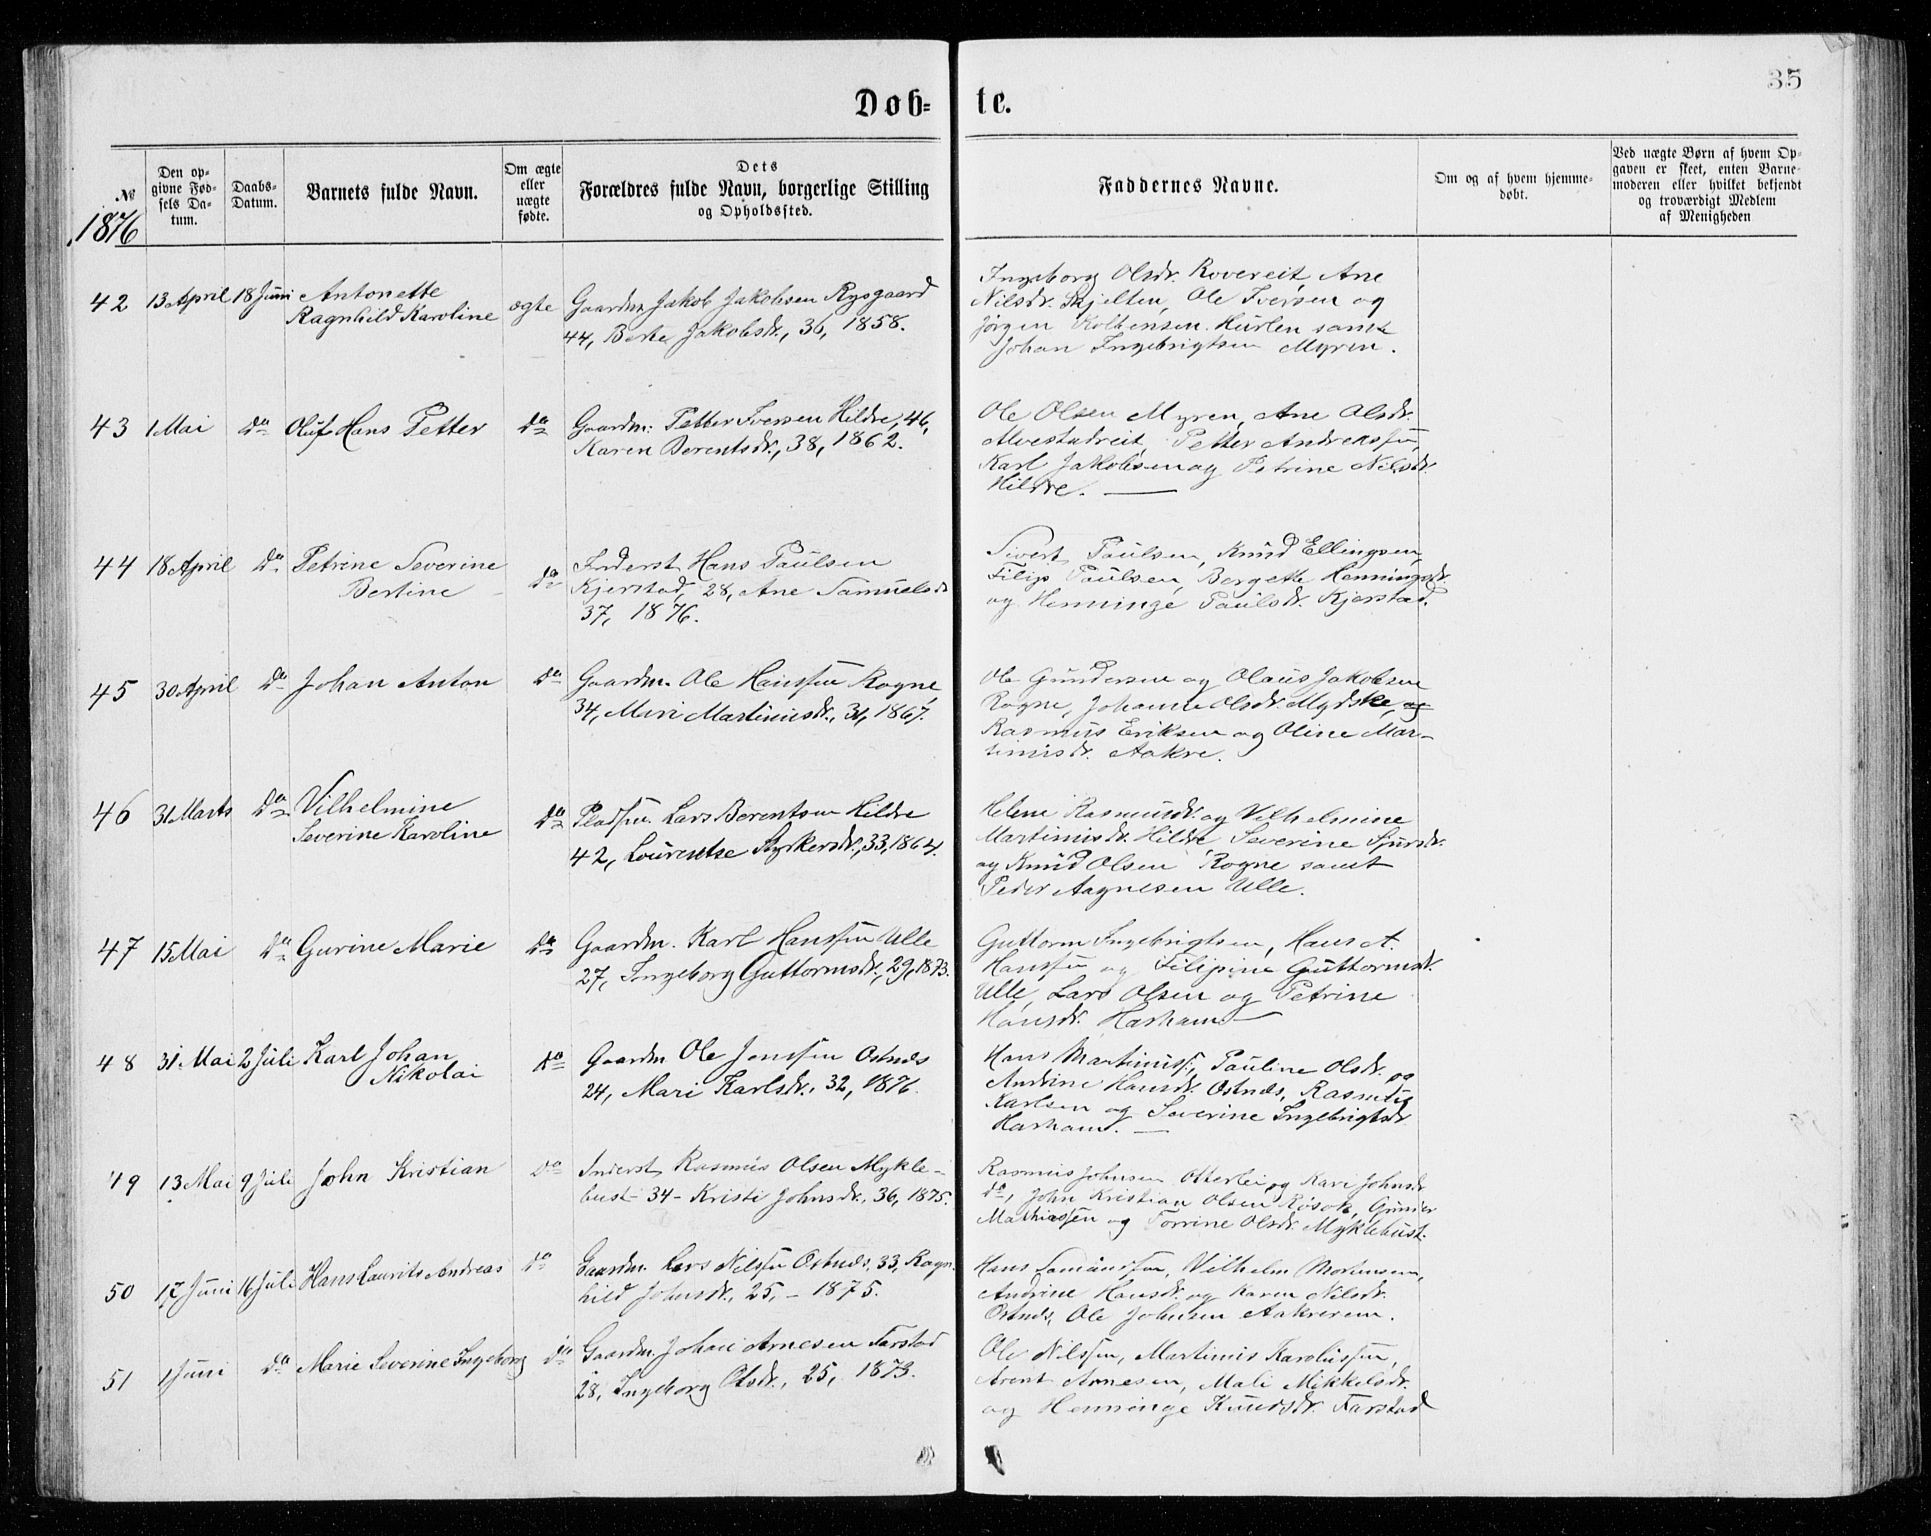 35
Døb=te.
№
Den op-
givne Fød-
sels Da-
tum.
Daabs-
Datum.
Barnets fulde Navn.
Om ægte
eller
uægte
fødte.
Dets
Forældres fulde Navn, borgerlige Stilling
og Opholdssted.
Faddernes Navne.
Om og af hvem hjemme-
døbt.
Ved uægte Børn af hvem Op-
gaven er skeet, enten Barne-
moderen eller hvilket bekjendt
og troværdigt Medlem
af Menigheden
1876
42 13 April 18 Juni Antonette
Ragnhild Karoline
ægte
Gaardm. Jakob Jakobsen Rysgaard
44, Berte Jakobsdr., 36, 1858.
Ingeborg Olsdr. Rovereit, Ane
Nilsdr. Skjelten, Ole Iversen og
Jørgen Kolbensen Hurlen samt
Johan Ingebrigtsen Myren.
43 1 Mai do Oluf Hans Petter do
Gaardm. Petter Iversen Hildre, 46,
Karen Berentsdr., 38, 1862.
Ole Olsen Myren, Ane Olsdr.
Alvestadreit, Petter Andreassen,
Karl Jakobsen og Petrine Nilsdr.
Hildre.
44 18 April do Petrine Severine
Bertine
do
Inderst Hans Paulsen
Kjerstad, 28, Ane Samuelsdr.
37, 1876.
Sivert Paulsen, Knud Ellingsen,
Filip Paulsen, Bergette Henningsdr.
og Henninge Paulsdr. Kjerstad.
45 30 April do Johan Anton do
Gaardm. Ole Hanssen Rogne,
34, Mari Martinusdr., 31, 1867.
Ole Gundersen og Olaus Jakobsen
Rogne, Johanne Olsdr. Mydske, og
Rasmus Eriksen og Oline Mar-
tinusdr. Aakre.
46 31 Marts do Vilhelmine
Severine Karoline
do
Pladsm. Lars Berentsen Hildre
42, Lourentse Styrkersdr., 33, 1864.
Helene Rasmusdr. og Vilhelmine
Martinusdr. Hildre Severine Sjursdr.
og Knud Olsen Rogne samt
Peder Aagnesen Ulle.
47 15 Mai do Gurine Marie do
Gaardm. Karl Hanssen Ulle
27, Ingeborg Guttormsdr., 29, 1873.
Guttorm Ingebrigtsen, Hans A.
Hanssen og Filipine Guttormsdr.
Ulle, Lars Olsen og Petrine
Hansdr. Harham
48 31 Mai 2 Juli Karl Johan
Nikolai
do
Gaardm. Ole Jonssen Ostnæs
24, Mari Karlsdr., 32, 1876.
Hans Martinuss., Pauline Olsdr. og
Andrine Hansdr. Ostnæs, Rasmus
Karlsen og Severine Ingebrigtsdr.
Harham.
49 13 Mai 9 Juli John Kristian do
Inderst Rasmus Olsen Mykle-
bust - 34 - Kristi Johnsdr., 36, 1875.
Rasmus Johnsen Otterlei og Kari Johnsdr.
do, John Kristian Olsen Røsok, Gunder
Mathiassen og Torrine Olsdr. Myklebust.
50 17 Juni 16 Juli Hans Laurits Andreas do
Gaardm. Lars Nilssen Ostnæs, 33, Ragn-
hild Johnsdr., 25, - 1875.
Hans Vilhelm Mortensen,
Andrine Hansdr. og Karen Nilsdr.
Ostnæs, Ole Johnsen Aakrerem.
51 1 Juni do Marie Severine Ingeborg do
Gaardm. Johan Arnesen Farstad
28, Ingeborg Olsdr., 25, 1873.
Ole Nilssen, Martinus Karolussen,
Arent Arnesen, Mali Mikkelsdr.
og Henninge Knudsdr. Farstad